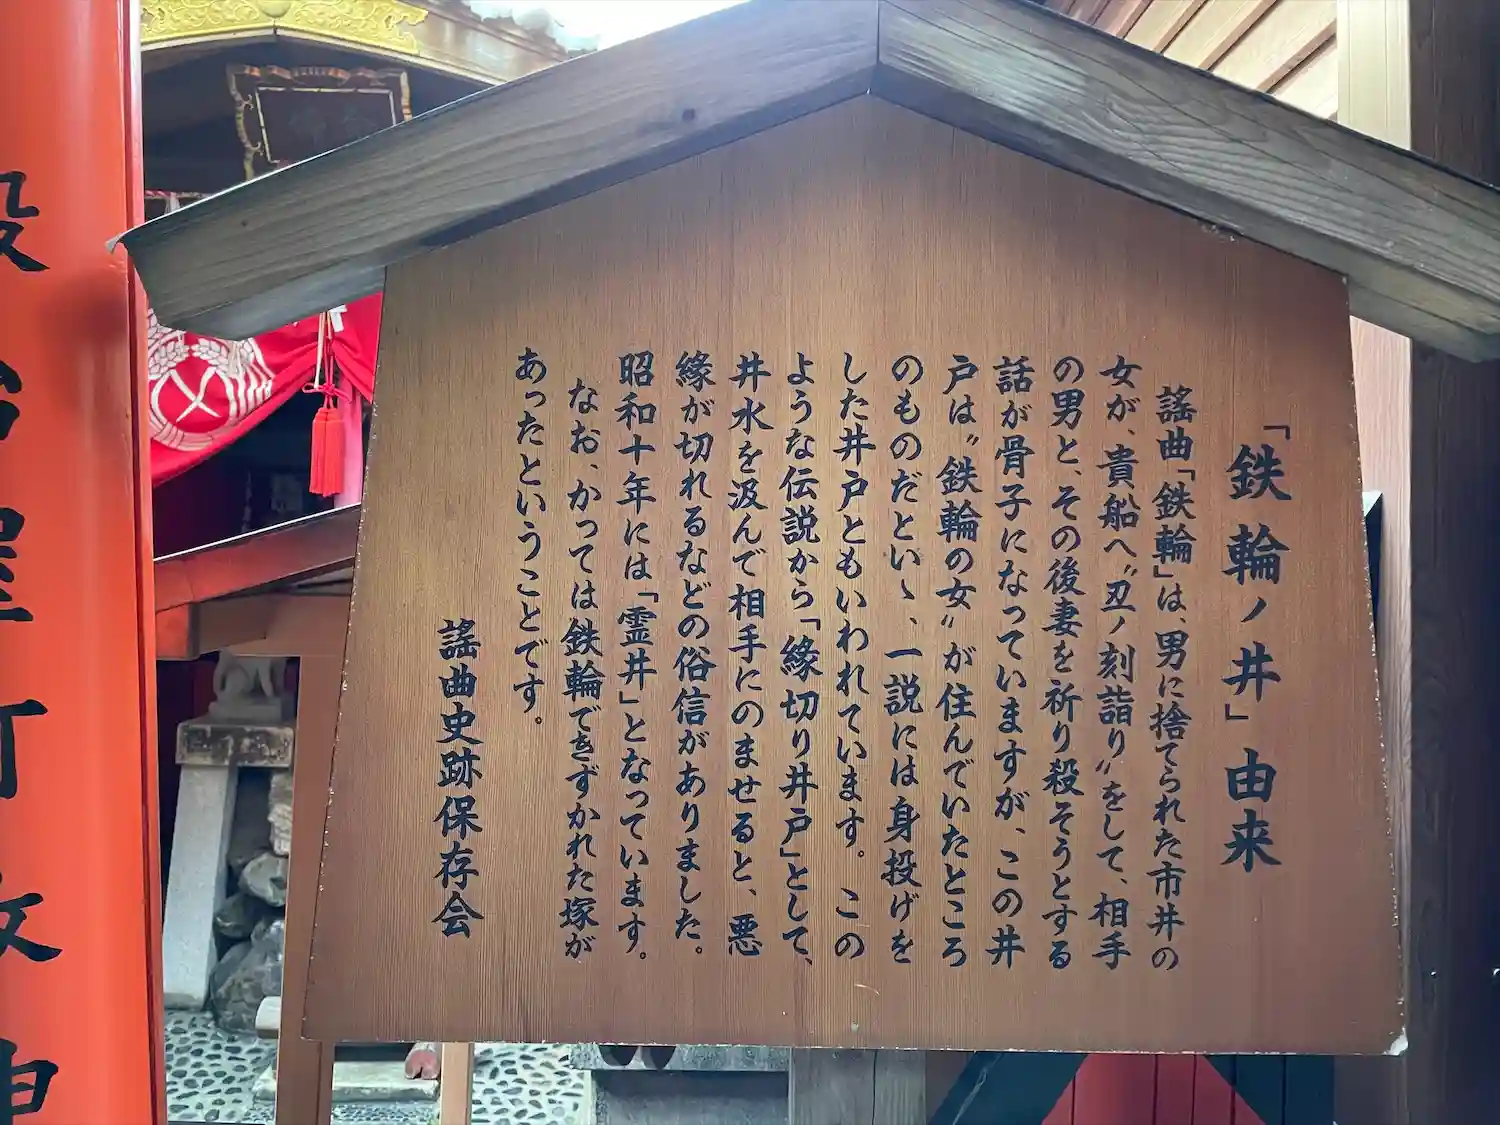 「鉄輪ノ井」由来
謡曲「鉄輪」は、男に捨てられた市井の
女が、貴船へ〝丑ノ刻詣り〟をして、相手
の男と、その後妻を祈り殺そうとする
話が骨子になっていますが、この井
戸は〝鉄輪の女〟が住んでいたところ
のものだといゝ、一説には身投げを
した井戸ともいわれています。この
ような伝説から「縁切り井戸」として、
井水を汲んで相手にのませると、悪
縁が切れるなどの俗信がありました。
昭和十年には「霊井」となっています。
なお、かっては鉄輪できずかれた塚が
あったということです。
謡曲史跡保存会